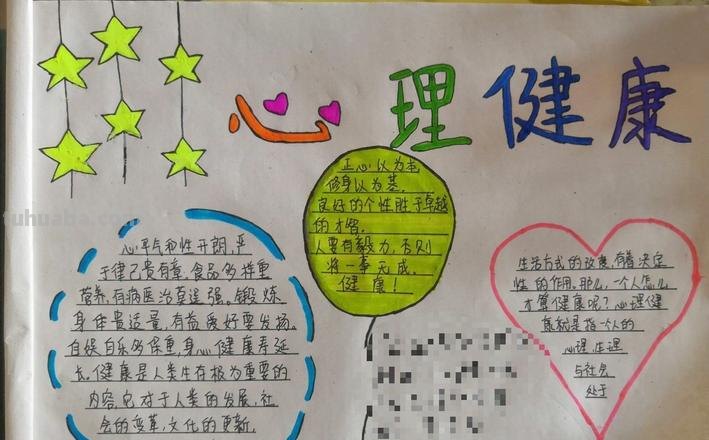 心理健康
正心以为本,
修身以为基,
良好的个性胜于卓越
的才智。
人要有毅力,否则
将一事无成。
健康!
心平气和性开朗,严
于律己贵有章,食品多样重
营养,有病医治莫逞强。锻炼
身体贵适量,有益爱好要发扬。
自娱自乐多保重,身心健康寿延
长。健康是人类生存极为重要的
内容,它对于人类的发展,社
会的变革,文化的更新,
生活方式的改变,有着决定
性的作用。那么,一个人怎么
才算健康呢?心理健
康就是指一个人的
心理、生理
与社会
处于
tuhuaba.com